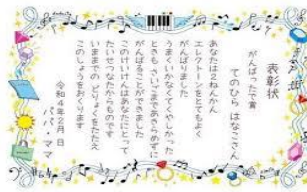 表彰状
がんばったで賞
てのひら はなこさん
あなたは2ねんかん
エレクトーンをとてもよく
がんばりました
うまくいかなくてくやしかった
ときも さいごまであきらめずに
がんばることができました
このけいけんはあなたにとって
たいせつなたからものです
いままでの どりょくをたたえ
このしょうをおくります
令和4年2月 日
パパ ママ